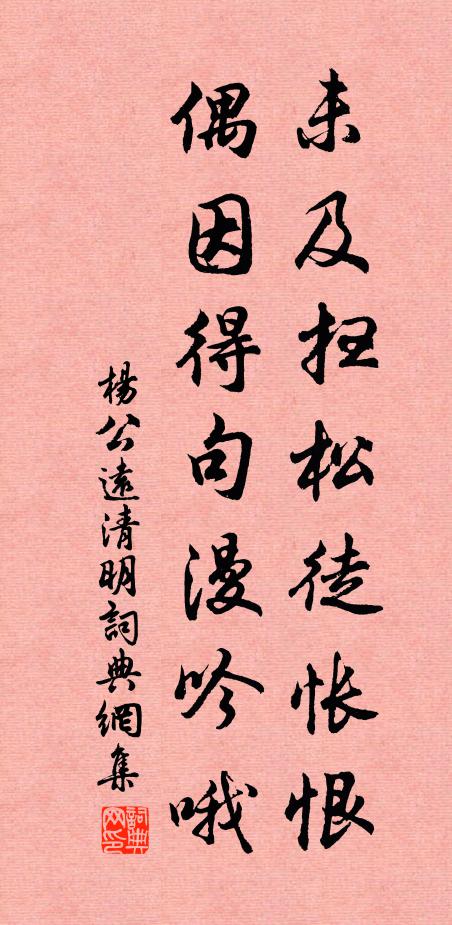 未及扫松徒怅恨
偶因得句漫吟哦
楊公遠清明詞典網集
詞典网印